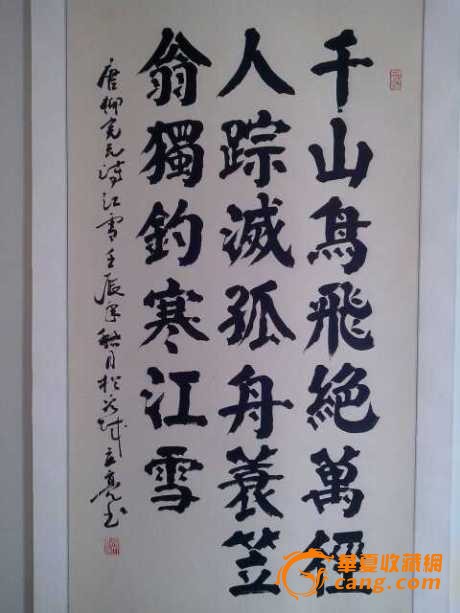 千山鳥飛絕萬徑
人踪滅孤舟蓑笠
翁獨釣寒江雪
唐柳宗元詩江雪壬辰年秋月於
華夏收藏網
cang.com